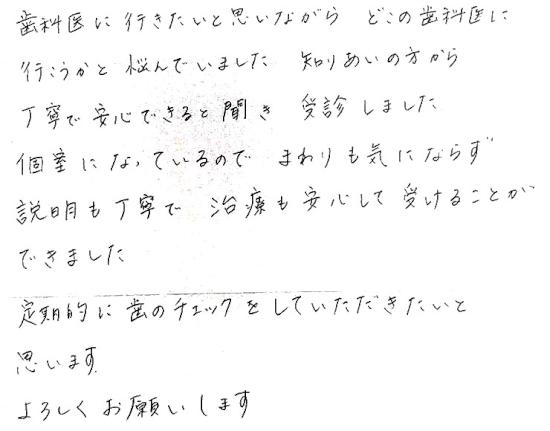 歯科医に行きたいと思いながら どこの歯科医に
行こうかと 悩んでいました 知りあいの方から
丁寧で安心できると聞き 受診しました
個室になっているので まわりも気にならず
説明も丁寧で 治療も安心して受けることが
できました
定期的に歯のチェックをしていただきたいと
思います
よろしくお願いします